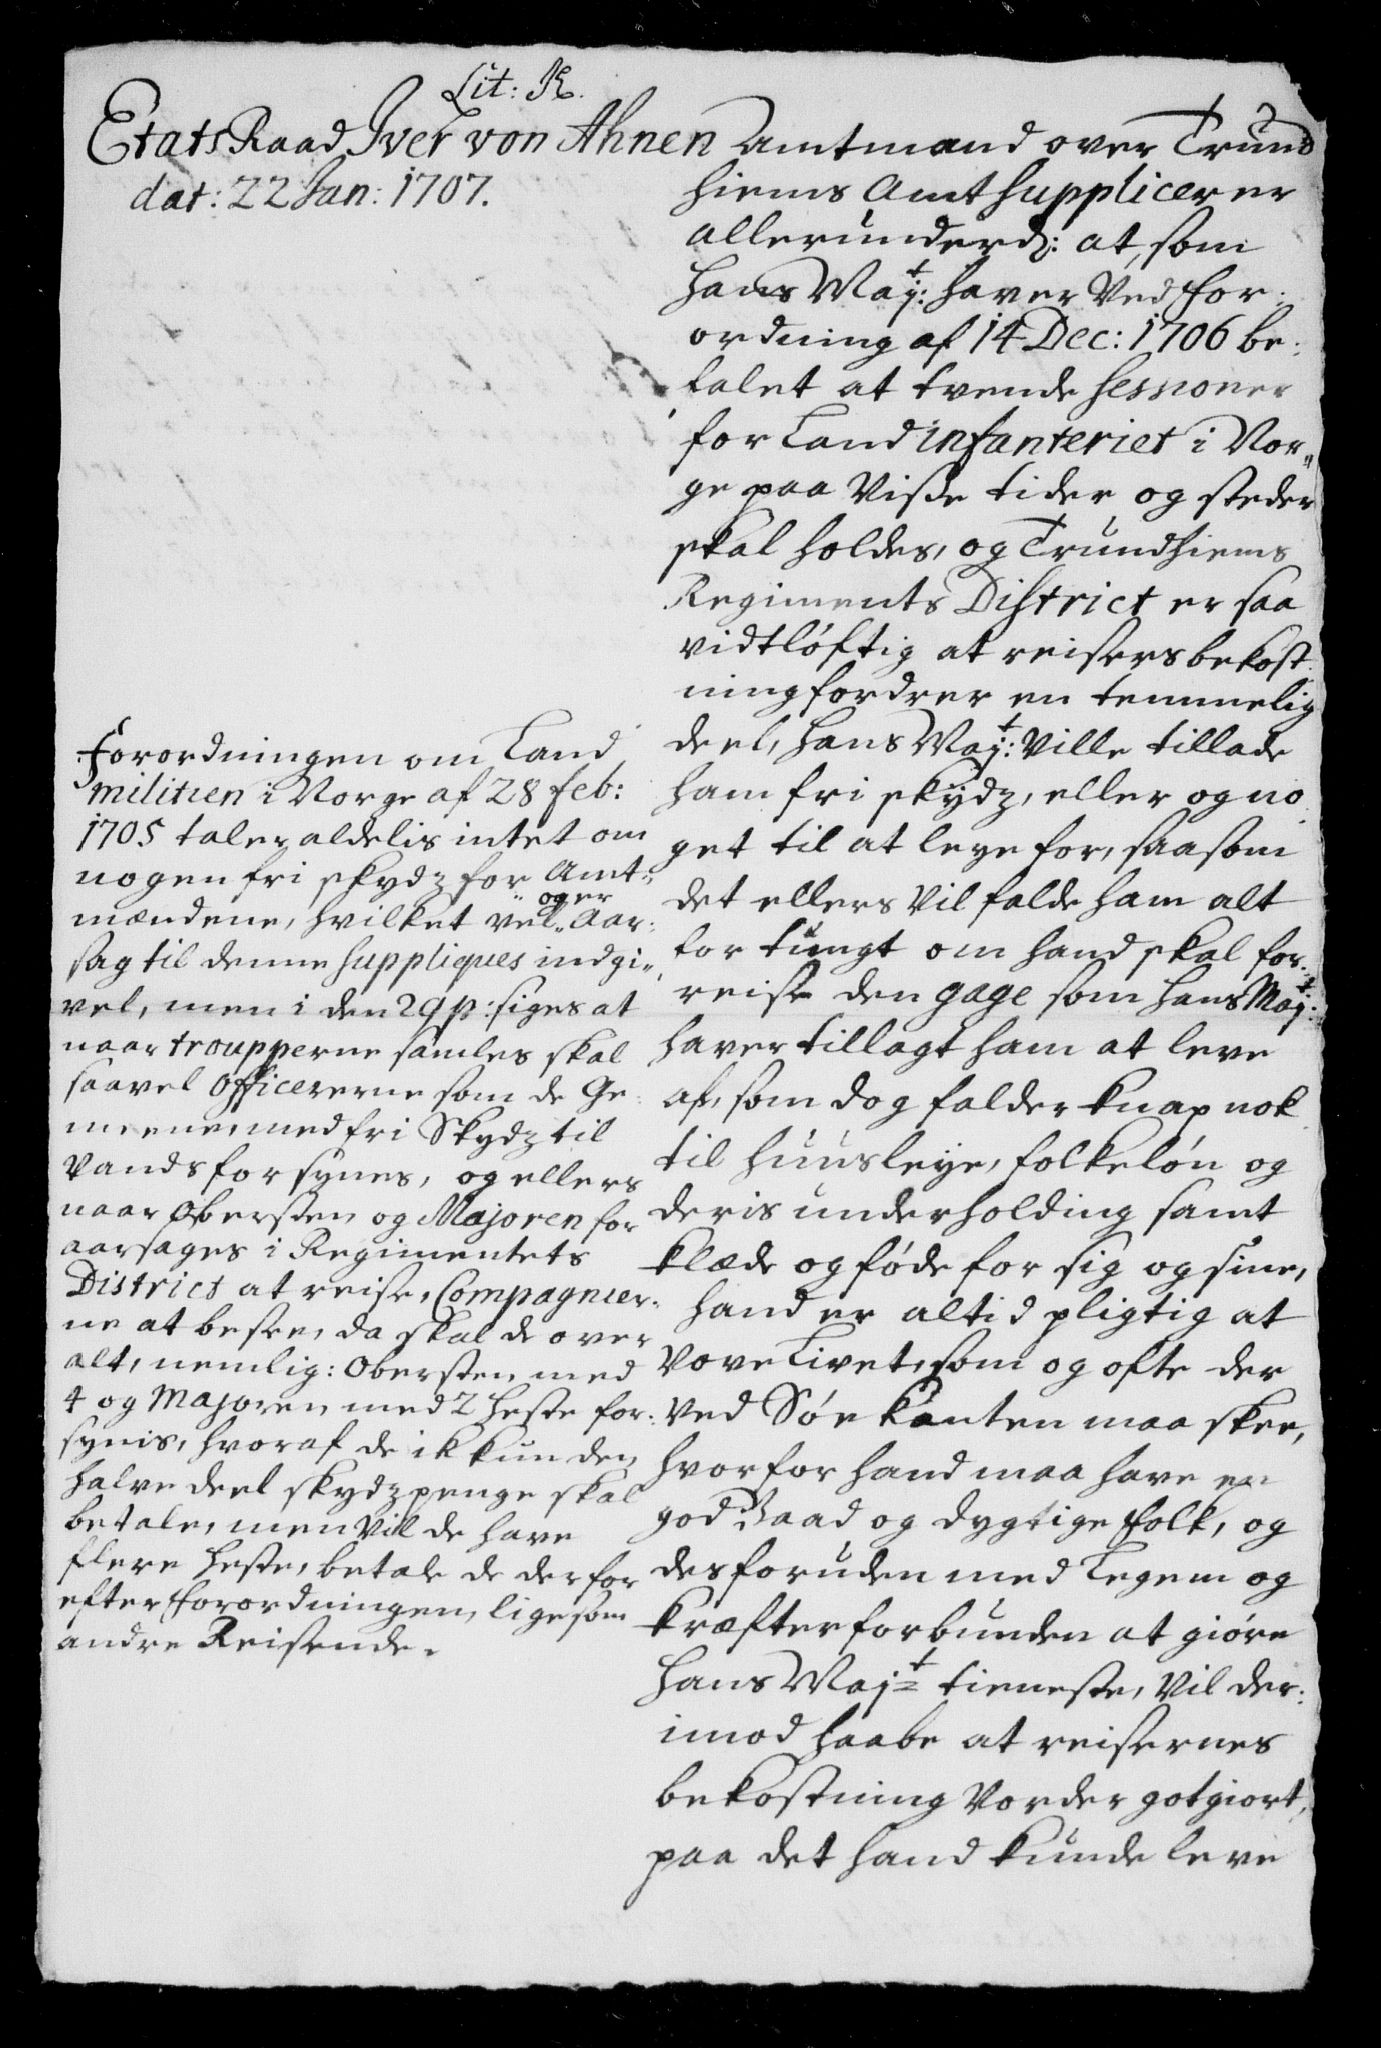 Lit: R.
EtatsRaad Iver von Ahnen Amtmand over Trund
dat: 22 Jan: 1707.
hiems Amt supplicerer
allerunderd: at, som
hans Maj:t haver ved for-
ordning af 14 Dec: 1706 be-
falet at tvende sessioner
for Land infanteriet i Nor-
ge paa visse tider og steder
skal holdes, og Trundhiems
Regiments District er saa
vidtløftig at reisers bekost-
ning fordrer en temmelig
deel, hans Maj:t ville tillade
ham fri skydz, eller og no-
get til at leye for, saasom
det ellers vil falde ham alt
for tungt om hand skal for-
reise den gage som hans Maj:t
haver tillagt ham at leve
af, som dog falder knap nok
til huusleye, folkeløn og
deris underholding samt
klæde og føde for sig og sine,
hand er altid pligtig at
vove Livet, som og ofte der
ved Søe kanten maa skee,
hvorfor hand maa have en
god Baad og dygtige folk, og
desforuden med Legem og
kræfter forbunden at giøre
hans Maj:t tieneste, vil der-
imod haabe at reisernes
bekostning vorder gotgiort,
paa det hand kunde leve
Forordningen om Land
militien i Norge af 28 feb:
1705 taler aldelis intet om
nogen fri skydz for Amt-
og er
mændene, hvilket vel Aar-
sag til denne suppliques indgi-
vel, men i den 29 p: siges at
naar troupperne samles skal
saavel Officererne som de Ge-
meene, med fri Skydz til
Vands forsynes, og ellers
naar Obersten og Majoren for
aarsages i Regimentets
District at reise, Compagnier-
ne at besee, da skal de over
alt, nemlig: Obersten med
4 og Majoren med 2 heste for-
synis, hvoraf de ikkun den
halve deel skydzpenge skal
betale, men vill de have
flere heste, betale de derfor
efter forordningen, ligesom
andre Reisende.